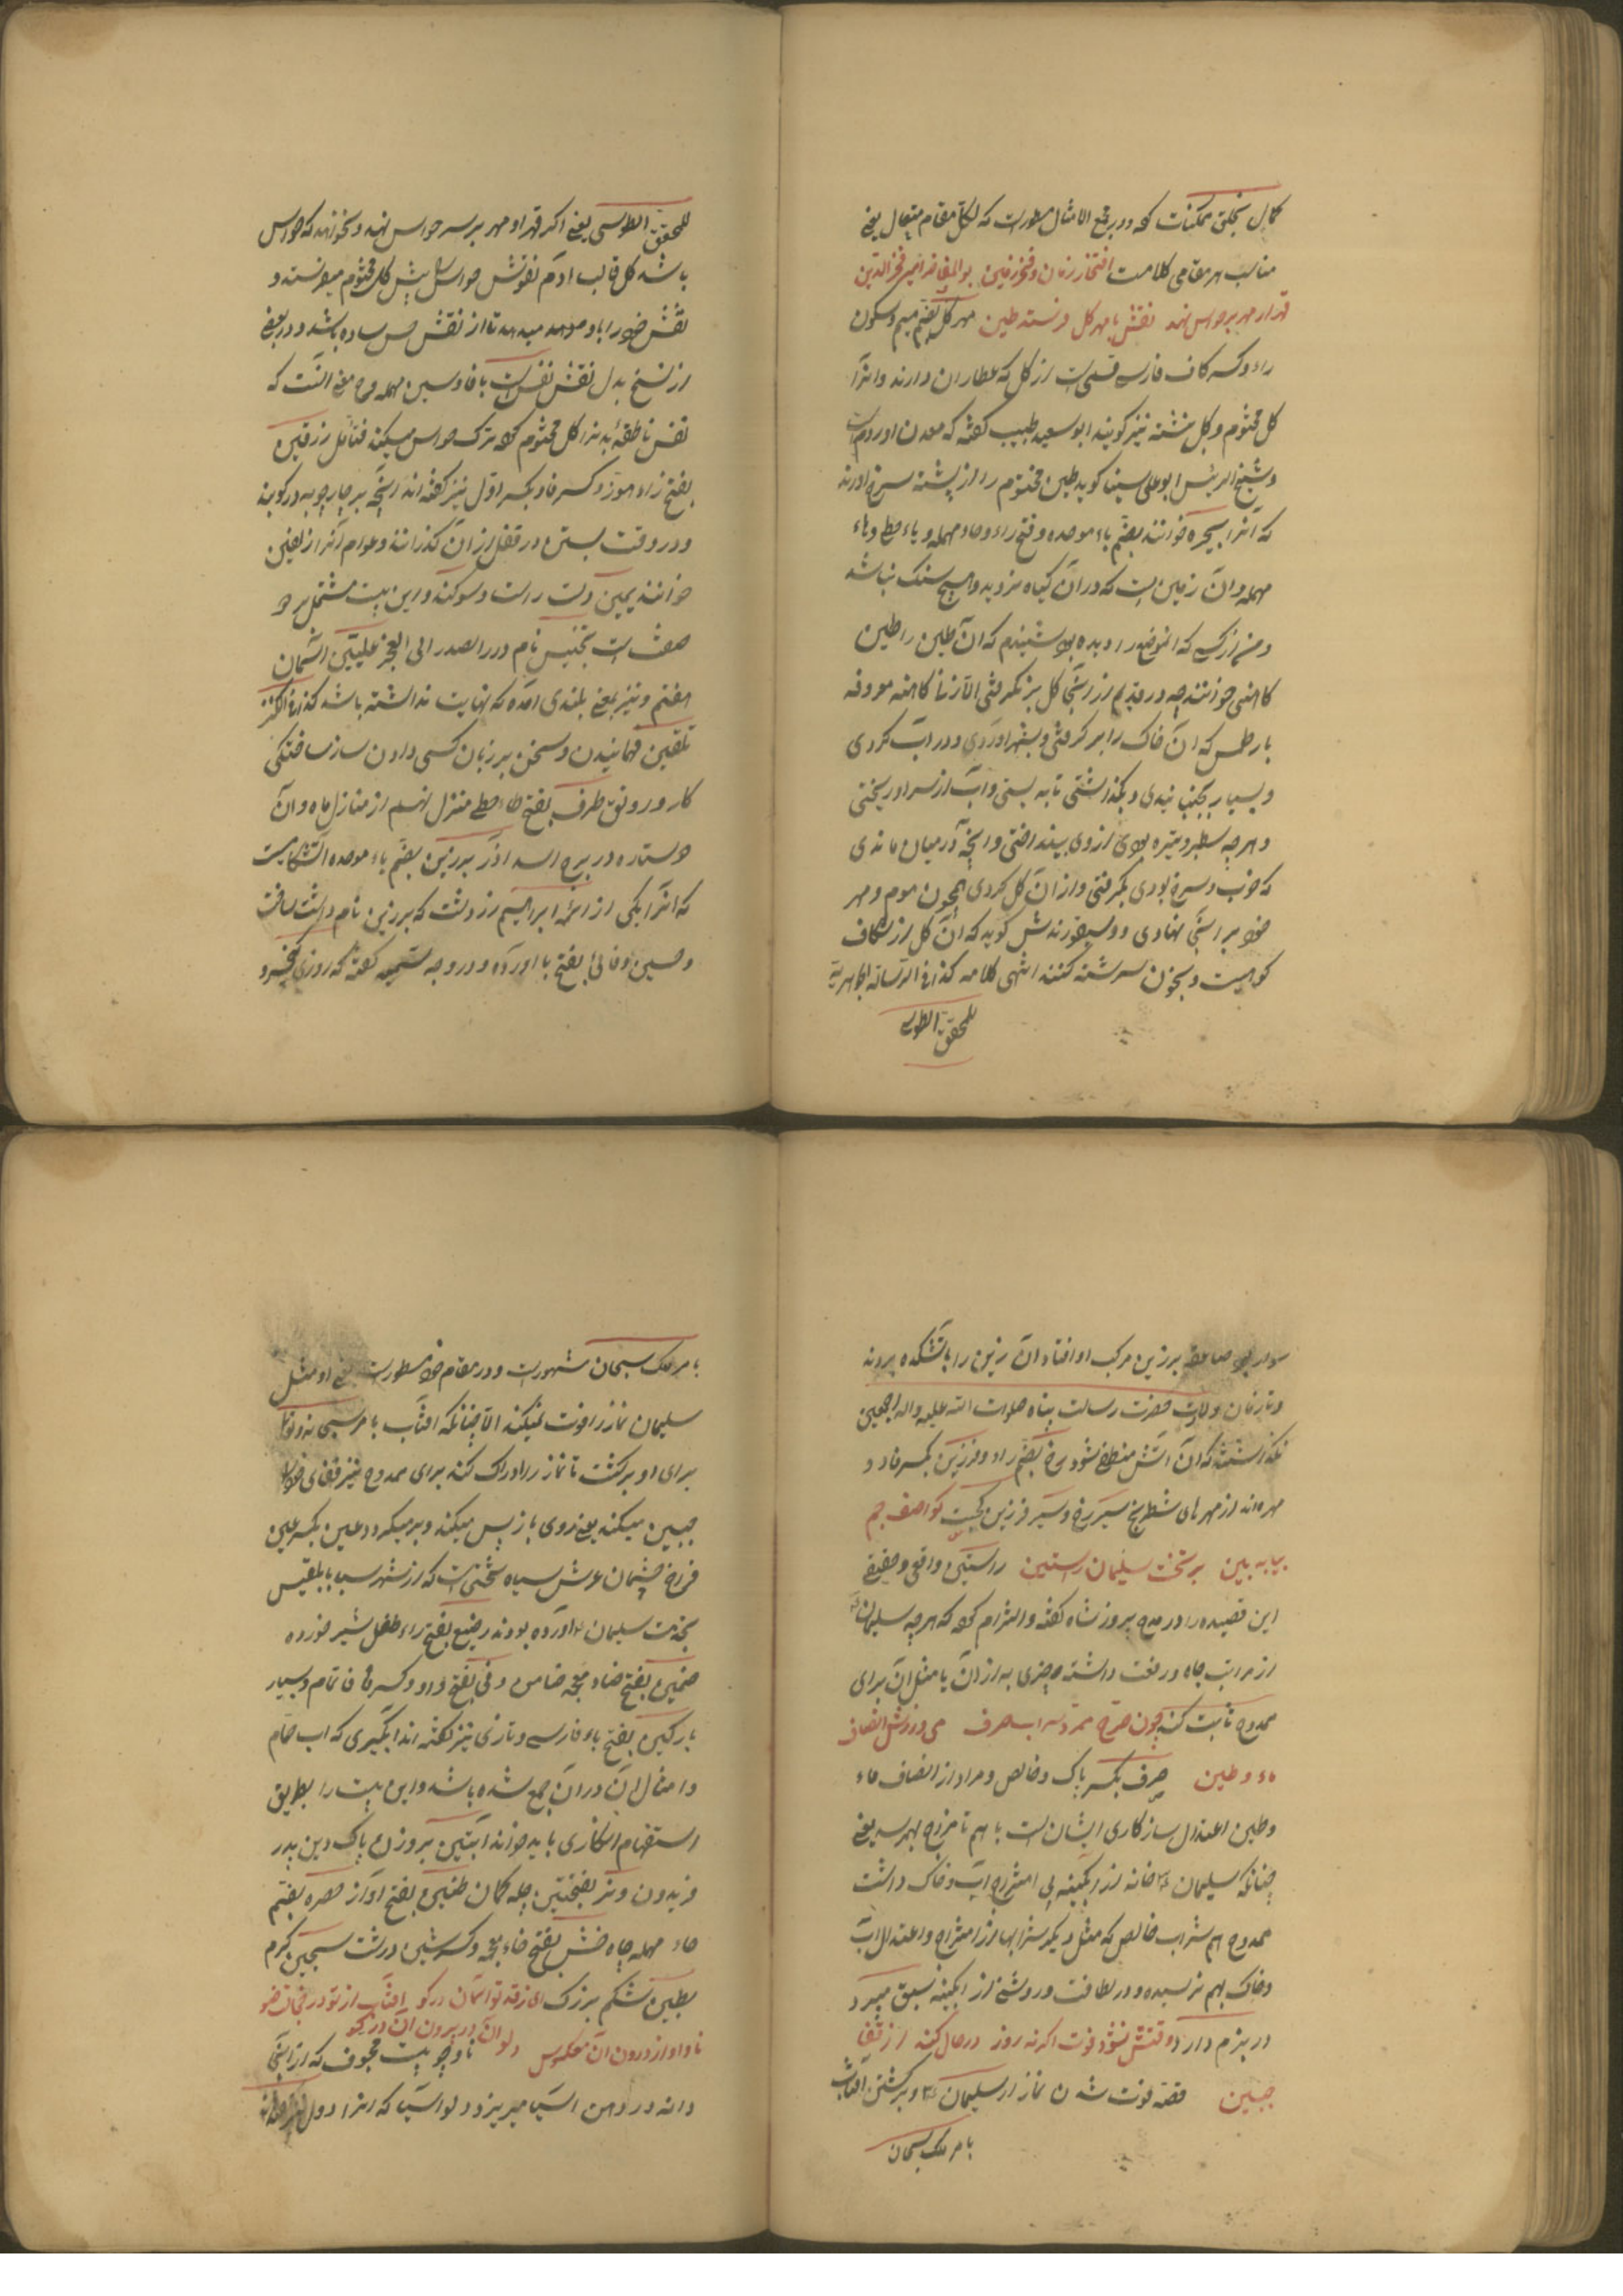 کمال بخلق ممکنات کرد و در مجمع الامثال مسطورست که لکل مقام مقال یعنی
مناسب هر مقامی کلامیست افتخار زمان و فخر زمین بوالمفاخر امیر فخرالدین
قهر ار مهر بر حواس نهد نفس با مهر گل فرستد طین مهر گل بضم میم و سکون
راء و کسر کاف فارسی قسمی است از گل که عطاران دارند و آنرا
گل مختوم و گل نبشته نیز گویند ابو سعید طبیب گفته که معدن او روم است
و شیخ الرئیس ابو علی سینا گوید طین مختوم را از پشته سرخ آورند
که آنرا بحیره خوانند بضم باء موحده و فتح راء و حاء مهمله و یاء حطی و هاء
مهمله و آن زمین است که در آن گیاه نروید و هیچ سنگ نباشد
و من از کسی که آن موضع را دیده بود شنیدم که آن طین را طین
کاهنی خوانند چه در قدیم از آنجا گل بر نگرفتی الا زنی کاهنه معروفه
بارطمس که آن خاک را برگرفتی و بشهر آوردی و در آب کردی
و بسیار بجنبانیدی و بگذاشتی تا به بستی و آب از سر او ریختی
و هرچه سطبر و تیره بودی از وی بینداختی و آنچه در میان ماندی
که چرب و سرخ بودی بگرفتی و از آن گل کردی همچون موم و مهر
خود بر آنجا نهادی و دیسقوریدش گوید که آن گل از شکاف
کوهیست و بخون سرشته کنند انتهی کلامه کذا فی الرسالة الجواهریة
للمحقق الطوسی
للمحقق الطوسی یعنی اگر قهر او مهر بر سر حواس نهد و نخواهد که حواس
باشد گل قالب آدم نفوس حواس را پیش گل مختوم میفرستد و
نقش خود را باو میدهد تا از نقش حس ساده باشد و در بعضی
از نسخ بدل نقش نفس است با فا و سین مهمله و معنی آنست که
نفس ناطقه بدن را گل مختوم کرده ترک حواس میکند فتأمل رزفین
بفتح زاء هوز و کسر فا و بکسر اول نیز گفته اند آنچه بر چارچوبه در کوبند
و در وقت بستن در قفل از آن گذرانند و عوام آنرا زلفین
خوانند یمین دست راست و سوگند و این بیت مشتمل بر دو
صفت است تجنیس تام و رد الصدر الی العجز علیین آسمان
هفتم و نیز بمعنی بلندی آمده که نهایت نداشته باشد کذا فی الکنز
تلقین فهمانیدن و سخن بر زبان کسی دادن ساز ساختگی
کار و رونق طرف بفتح طاء حطی منزل نهم از منازل ماه و آن
دو ستاره در برج اسد آذر برزین بضم باء موحده آتشکده ایست
که آنرا یکی از ائمه ابراهیم زردشت که برزین نام داشت ساخت
و حسین وفائی بفتح با آورده و در وجه تسمیه گفته که روزی کیخسرو
سوار بود صاعقه بر زین مرکب او افتاد آن زین را باتشکده بردند
و تا زمان ولادت حضرت رسالت پناه صلوات الله علیه و اله اجمعین
نگذاشتند که آن آتش منطفی شود رخ بضم راء و فرزین بکسر فا دو
مهره اند از مهرهای شطرنج سیر رخ و سیر فرزین کجیست کو آصف جم
بیا ببین بر تخت سلیمان راستین راستین واقعی و حقیقی
این قصیده را در مدح پیروز شاه گفته و التزام کرده که هرچه سلیمان
از مراتب جاه و رفعت داشته چیزی به از آن یا مثل آن برای
ممدوح ثابت کند چون صرح ممرد شراب صرف می ورزش انصاف
ماء و طین صرف بکسر پاک و خالص و مراد از انصاف ماء
و طین اعتدال سازگاری ایشانست باهم تا مزاج بهم رسد یعنی
چنانکه سلیمان خانه از آبگینه بی امتزاج آب و خاک داشت
ممدوح هم شراب خالص که مثل دیگر شرابها از امتزاج و اعتدال آب
و خاک بهم نرسیده و در لطافت و روشنی از آبگینه سبق میبرد
در بزم دارد و قتش نشود فوت اگرنه روز در حال کند از قفا
جبین قصه فوت شدن نماز از سلیمان و برگشتن آفتاب
بامر ملک سبحان
بامر ملک سبحان مشهورست و در مقام خود مسطورست یعنی او مثل
سلیمان نماز را فوت نمیکند الا چنانکه آفتاب بامر سبحانه و تعالی
برای او برگشت تا نماز را ادراک کند برای ممدوح نیز قفای خود را
جبین میکند یعنی روی باز پس میکند و برمیگردد عین بکسر عین
فراخ چشمان عرش سباء تختی است که از شهر سبا با بلقیس
بخدمت سلیمان آورده بودند رضیع بفتح راء طفل شیر خورده
ضمین بفتح ضاد معجمه ضامن وفی بفتح واو و کسر فا تمام و بسیار
پارگین بفتح باء فارسی و تازی نیز گفته اند آبگیری که آب حمام
و امثال آن در آن جمع شده باشد و این بیت را بطریق
استفهام انکاری باید خواند آبتین بر وزن پاک دین پدر
فریدون وتر بفتحتین چله کمان طنین بفتح آواز حصره بضم
حاء مهمله چاه خشن بفتح خاء معجمه و کسر شین درشت سبجین کرم
بطین شکم بزرگ ای زقد تو آسمان در گو آفتاب از تو در فغان ضو
ناو او از درون آن معکوس دلو آن در برون آن در گو ناو چوبیست مجوف که از آنجا
دانه در دهن آسیا میریزد و دلو آسیا که آنرا دول